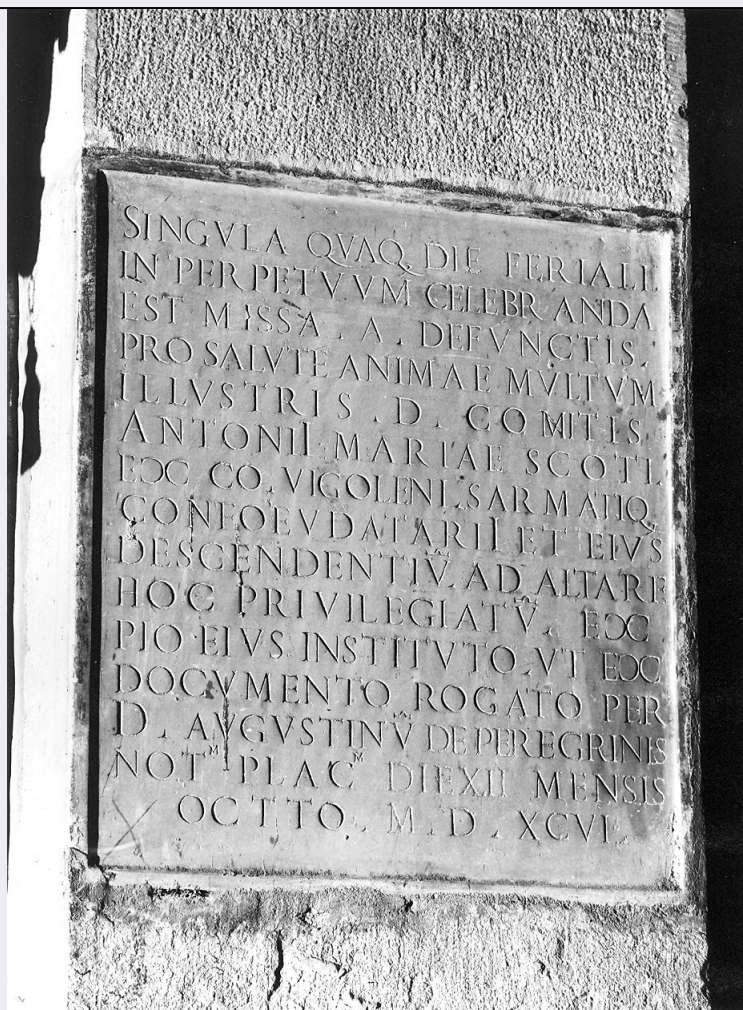 SINGVLA QVAQ. DIE FERIALI
IN PERPETVVM CELEBRANDA
EST MISSA . A . DEFVNCTIS.
PRO SALVTE ANIMAE MVLTVM
ILLVSTRIS . D . COMITIS
ANTONII MARIAE SCOTI.
EƆC CO. VIGOLENI. SARMATIQ.
CONFOEVDATARII ET EIVS
DESCENDENTIV̄. AD ALTARE
HOC PRIVILEGIATV̄. EƆC
PIO EIVS INSTITVTO. VT EƆC
DOCVMENTO ROGATO PER
D. AVGVSTINV̄ DE PEREGRINIS
NOTᴹ PLACᴹ DIE XII MENSIS
OCTTO . M . D . XCVI.